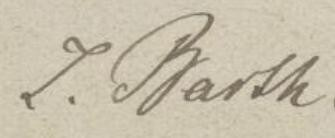 Z. Barth